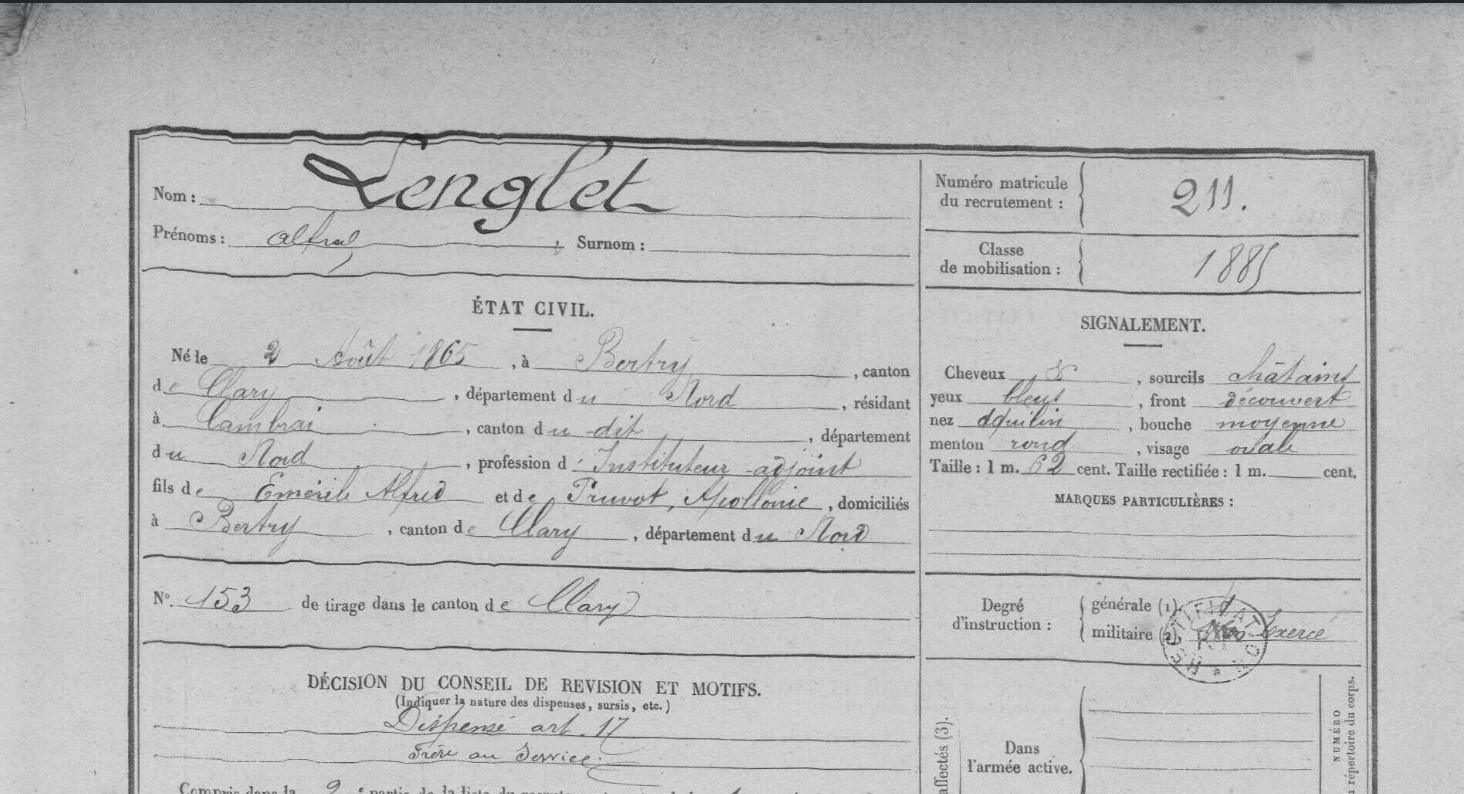 Nom : Lenglet
Prénoms : Alfred ; Surnom :
ÉTAT CIVIL.
Né le 2 Août 1865, à Bertry, canton
de Clary, département du Nord, résidant
à Cambrai, canton du dit, département
du Nord, profession d'Instituteur adjoint
fils de Emérile Alfred et de Pruvot, Apollonie, domiciliés
à Bertry, canton de Clary, département du Nord
N°. 153 de tirage dans le canton de Clary
DÉCISION DU CONSEIL DE REVISION ET MOTIFS.
(Indiquer la nature des dispenses, sursis, etc.)
Dispensé art. 17
Frère au Service.
Compris dans la 2e partie de la liste du
Numéro matricule
du recrutement : 211.
Classe
de mobilisation : 1885
SIGNALEMENT.
Cheveux &, sourcils châtains
yeux bleus, front découvert
nez aquilin, bouche moyenne
menton rond, visage ovale
Taille : 1 m. 62 cent. Taille rectifiée : 1 m. cent.
MARQUES PARTICULIÈRES :
Degré
d'instruction :
générale (1).
militaire (2). exercé
RECTIFICATION
affectés (3).
Dans
l'armée active.
NUMÉRO
répertoire du corps.